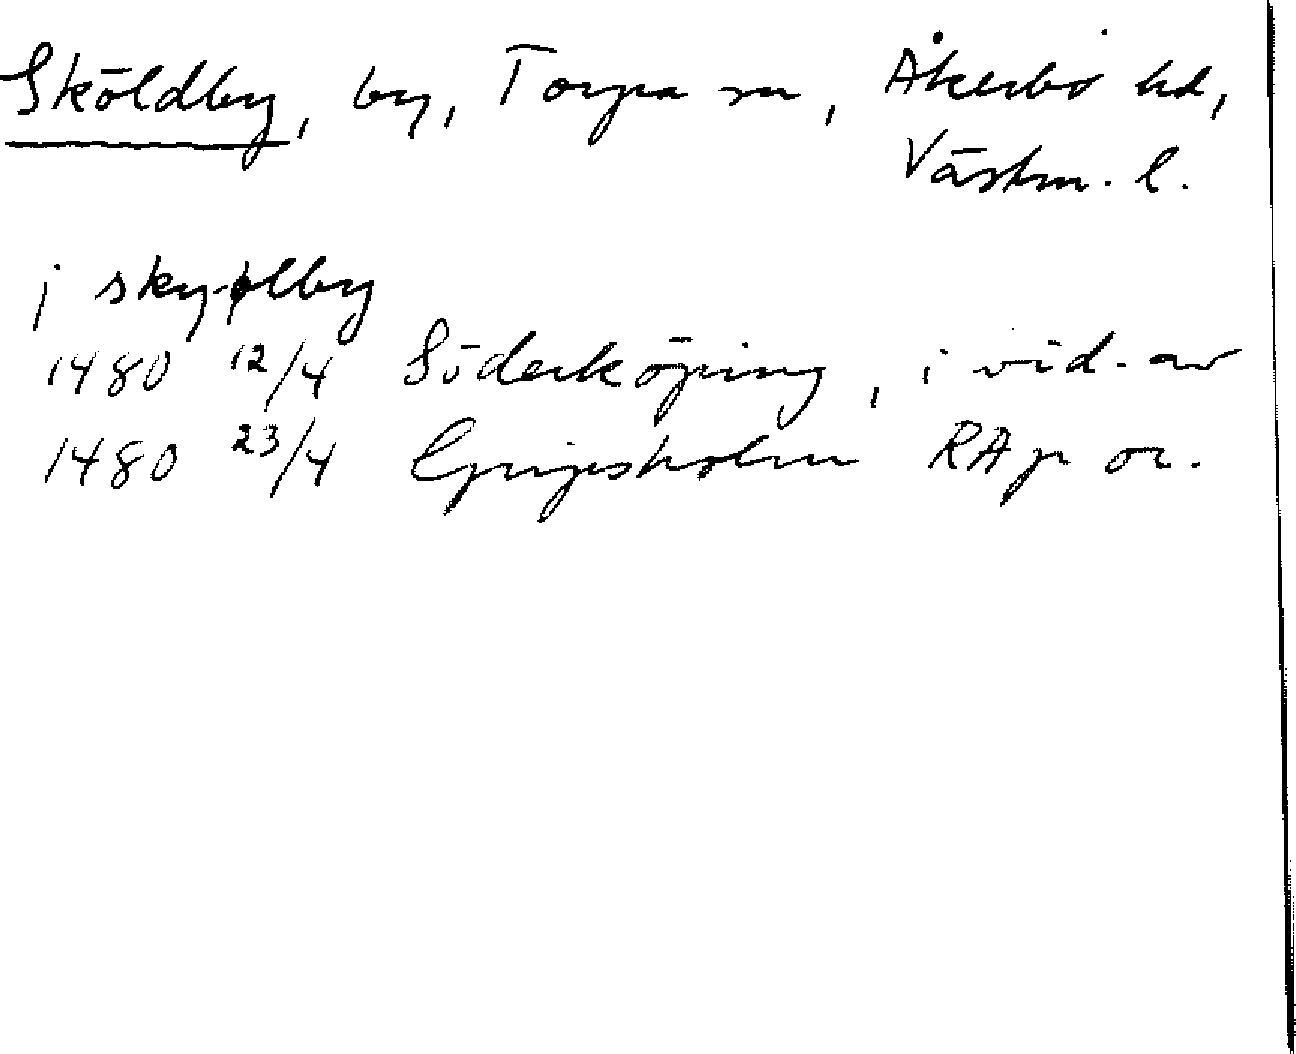 Sköldby, by, Torpa sn, Åkerbo hd,
Västm. l.
j skyølby
1480 12/4 Söderköping, i vid. av
1480 23/4 Gripsholm RAp or.